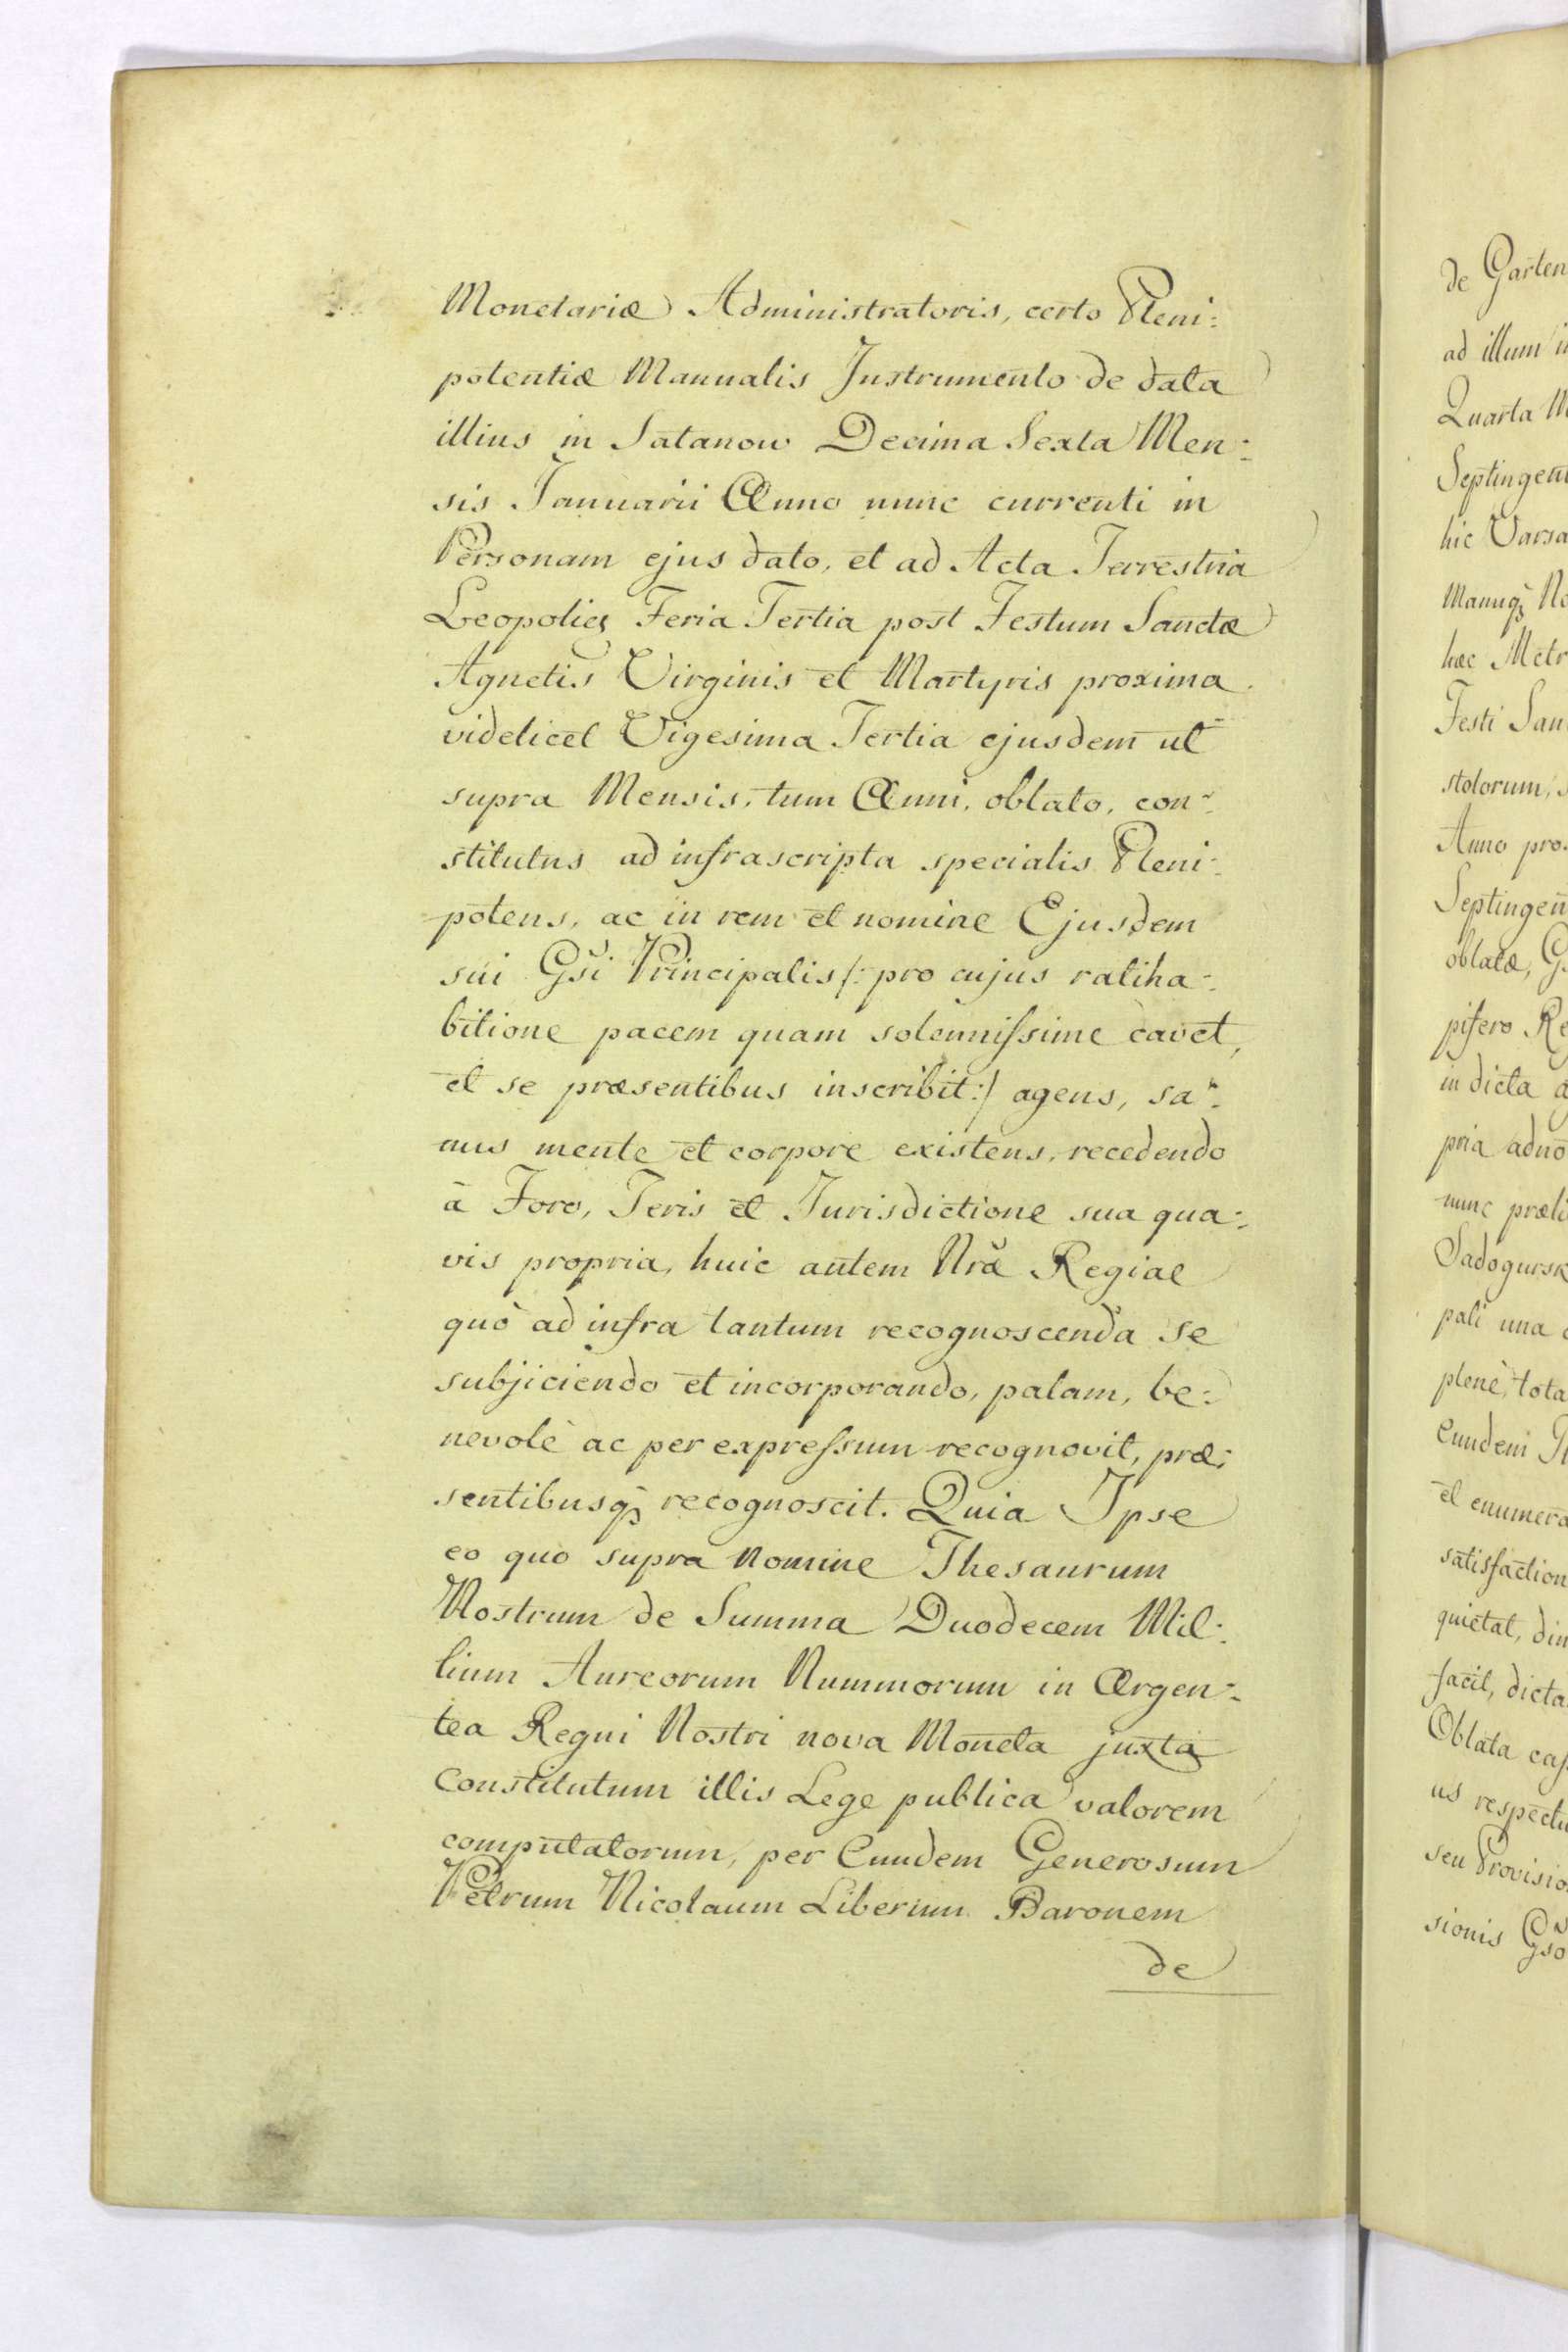 Monetariæ Administratoris, certo Pleni:
potentiæ Manualis Instrumento de data
illius in Satanow Decima Sexta Men:
sis Januarii Anno nunc currenti in
Personam ejus dato, et ad Acta Terrestria
Leopolien Feria Tertia post Festum Sanctæ
Agnetis Virginis et Martyris proxima
videlicet Vigesima Tertia ejusdem ut
supra Mensis, tum Anni, oblato, con:
stitutus ad infrascripta specialis Pleni:
potens, ac in rem et nomine Ejusdem
sui Gsi Principalis /: pro cujus ratiha:
bitione pacem quam solennissime cavet,
et se præsentibus inscribit :/ agens, sa:
nus mente et corpore existens, recedendo
à Foro, Teris et Jurisdictione sua qua:
vis propria, huic autem Nrã Regiae
quò ad infra tantum recognoscenda se
subjiciendo et incorporando, palam, be:
nevolè ac per expressum recognovit, præ:
sentibusq; recognoscit. Quia Ipse
eo quo supra Nomine Thesaurum
Nostrum de Summa Duodecem Mil:
lium Aureorum Nummorum in Argen:
tea Regni Nostri nova Moneta juxta
Constitutum illis Lege publica valorem
computatorum, per Eundem Generosum
Petrum Nicolaum Liberum Baronem
de
de Garten
ad illum
Quarta
Septingen
hic Varsa
Manuq;
hæc Metr
Festi San
stolorum,
Anno pro
Septingen
oblatæ,
pifero Re
in dicta
pria adno
nunc præli
Sadogursk
pali una
plenè, tota
Eundem
et enumera
satisfaction
quietat, dim
facit, dicta
Oblata cas
us respectu
seu Provisio
sionis Gso